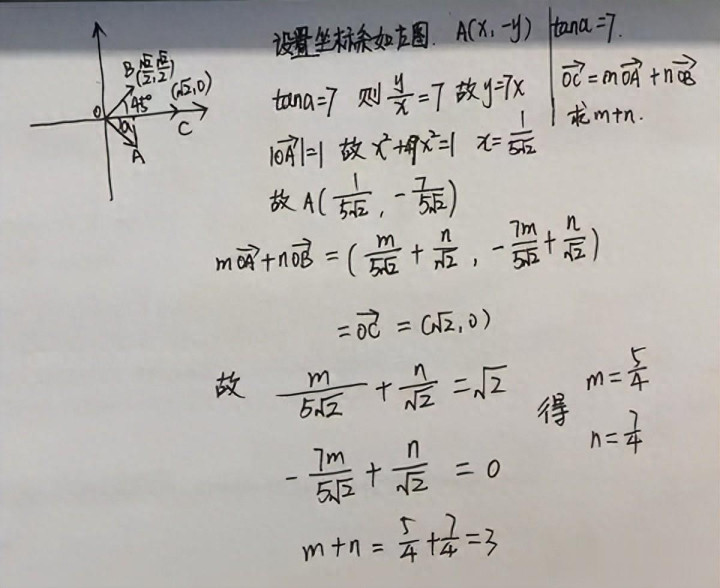 设置坐标系如左图. A(x, -y)
tanα=7.
\overrightarrow{OC} = m\overrightarrow{OA} + n\overrightarrow{OB}
求 m+n.
B(\frac{\sqrt{2}}{2}, \frac{\sqrt{2}}{2})
(\sqrt{2}, 0)
O 45° α C
A
tanα=7 则 \frac{y}{x} = 7 故 y=7x
|\overrightarrow{OA}|=1 故 x²+49x²=1 x = \frac{1}{5\sqrt{2}}
故 A(\frac{1}{5\sqrt{2}}, -\frac{7}{5\sqrt{2}})
m\overrightarrow{OA}+n\overrightarrow{OB} = (\frac{m}{5\sqrt{2}} + \frac{n}{\sqrt{2}}, -\frac{7m}{5\sqrt{2}} + \frac{n}{\sqrt{2}})
= \overrightarrow{OC} = (\sqrt{2}, 0)
故 \frac{m}{5\sqrt{2}} + \frac{n}{\sqrt{2}} = \sqrt{2}
-\frac{7m}{5\sqrt{2}} + \frac{n}{\sqrt{2}} = 0
得 m = \frac{5}{4}
n = \frac{7}{4}
m+n = \frac{5}{4} + \frac{7}{4} = 3